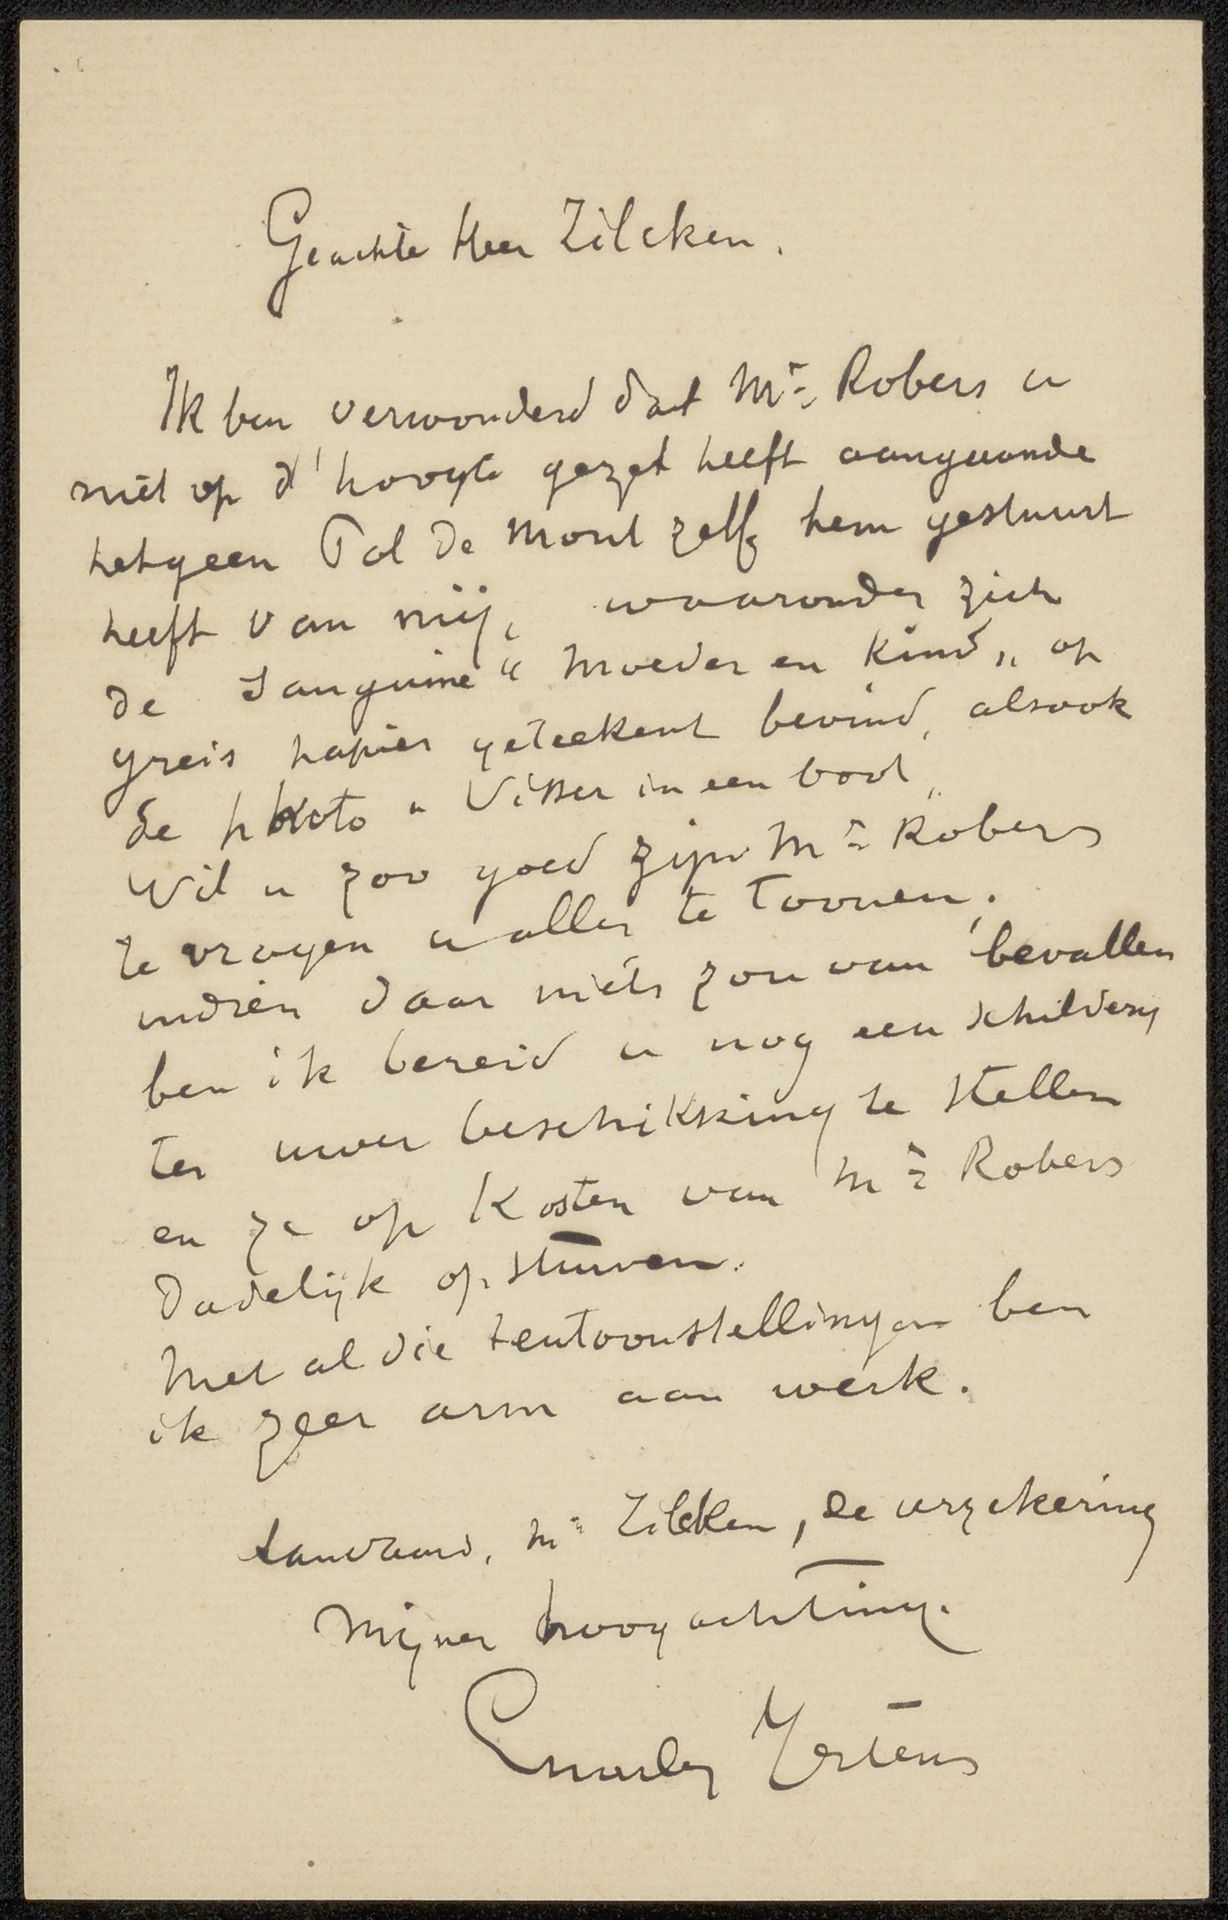 Geachte Heer Zilcken.
Ik ben verwonderd dat Mr Robers u
niet op d'hoogte gezet heeft aangaande
hetgeen Pol de Mont zelf hem gestuurt
heeft van mij, waaronder zich
de Sanguine "Moeder en Kind" op
greis papier geteekent bevind, alsook
de photo "Visser in een boot"
Wil u zoo goed zijn Mr Robers
te vragen u alles te toonen.
indien daar niets zou van bevallen
ben ik bereid u nog een schildery
ter uwer beschikking te stellen
en ze op kosten van Mr Robers
dadelijk opsturen.
Met al die tentoonstellingen ben
ik zeer arm aan werk.
Aanvaard, Mr Zilcken, de verzekering
mijner hoogachting.
Charles Mertens